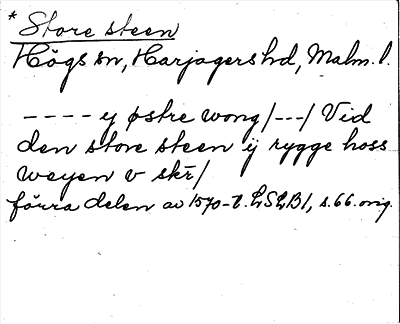 * Store steen
Högs sn, Harjagers hd, Malm. l.
---- ij østre wong/---/ Vid
den store steen ij rygge hoss
weyen v skr/
förra delen av 1570-t. LSLB1, s.66. orig.